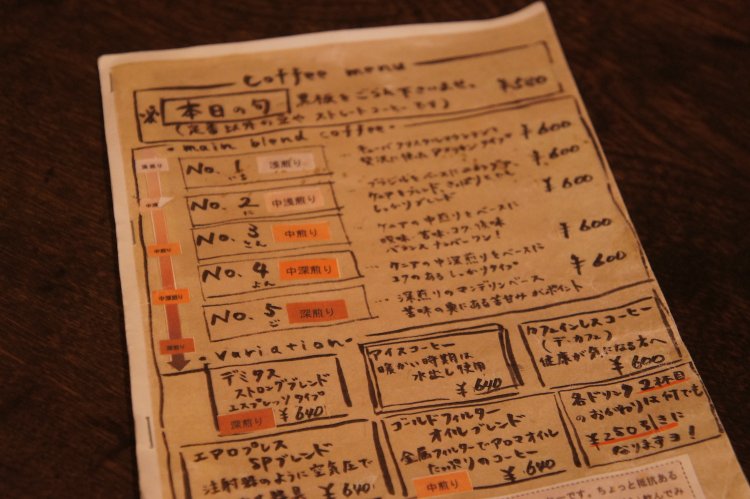 coffee menu
※ 本日の句 黒板をごらん下さいませ。 ¥580
(定番以外の豆や ストレートコーヒーです)
・main blend coffee・
浅煎り
中浅
中煎り
中深煎り
深煎り
No. 1 いち 浅煎り
キューバクリスタルマウンテンを
贅沢に使ったアメリカンタイプ
¥600
No. 2 に 中浅煎り
ブラジルをベースに
ケニアをブレンド、さっぱりとした
しっかりブレンド
¥600
No. 3 さん 中煎り
ケニアの中煎りをベースに
酸味、甘味、コク、後味
バランスナンバーワン!
¥600
No. 4 よん 中深煎り
…ケニアの中深煎りをベースに
コクのあるしっかりタイプ
¥600
No. 5 ご 深煎り
…深煎りのマンデリンベース
苦味の奥にある甘みがポイント
¥600
・variation・
デミタス
ストロングブレンド
エスプレッソタイプ
深煎り ¥640
アイスコーヒー
暖かい時期は
水出し使用
¥640
カフェインレスコーヒー
(デ・カフェ)
健康が気になる方へ
¥600
エアロプレス
SPブレンド
注射器のように空気圧で
¥640
ゴールドフィルター
オイルブレンド
金属フィルターでアロマオイル
たっぷりのコーヒー
中煎り ¥640
各ドリンク2杯目
のおかわりは何でも
¥250引きに
なりますヨ!
です。ちょっと抵抗ある